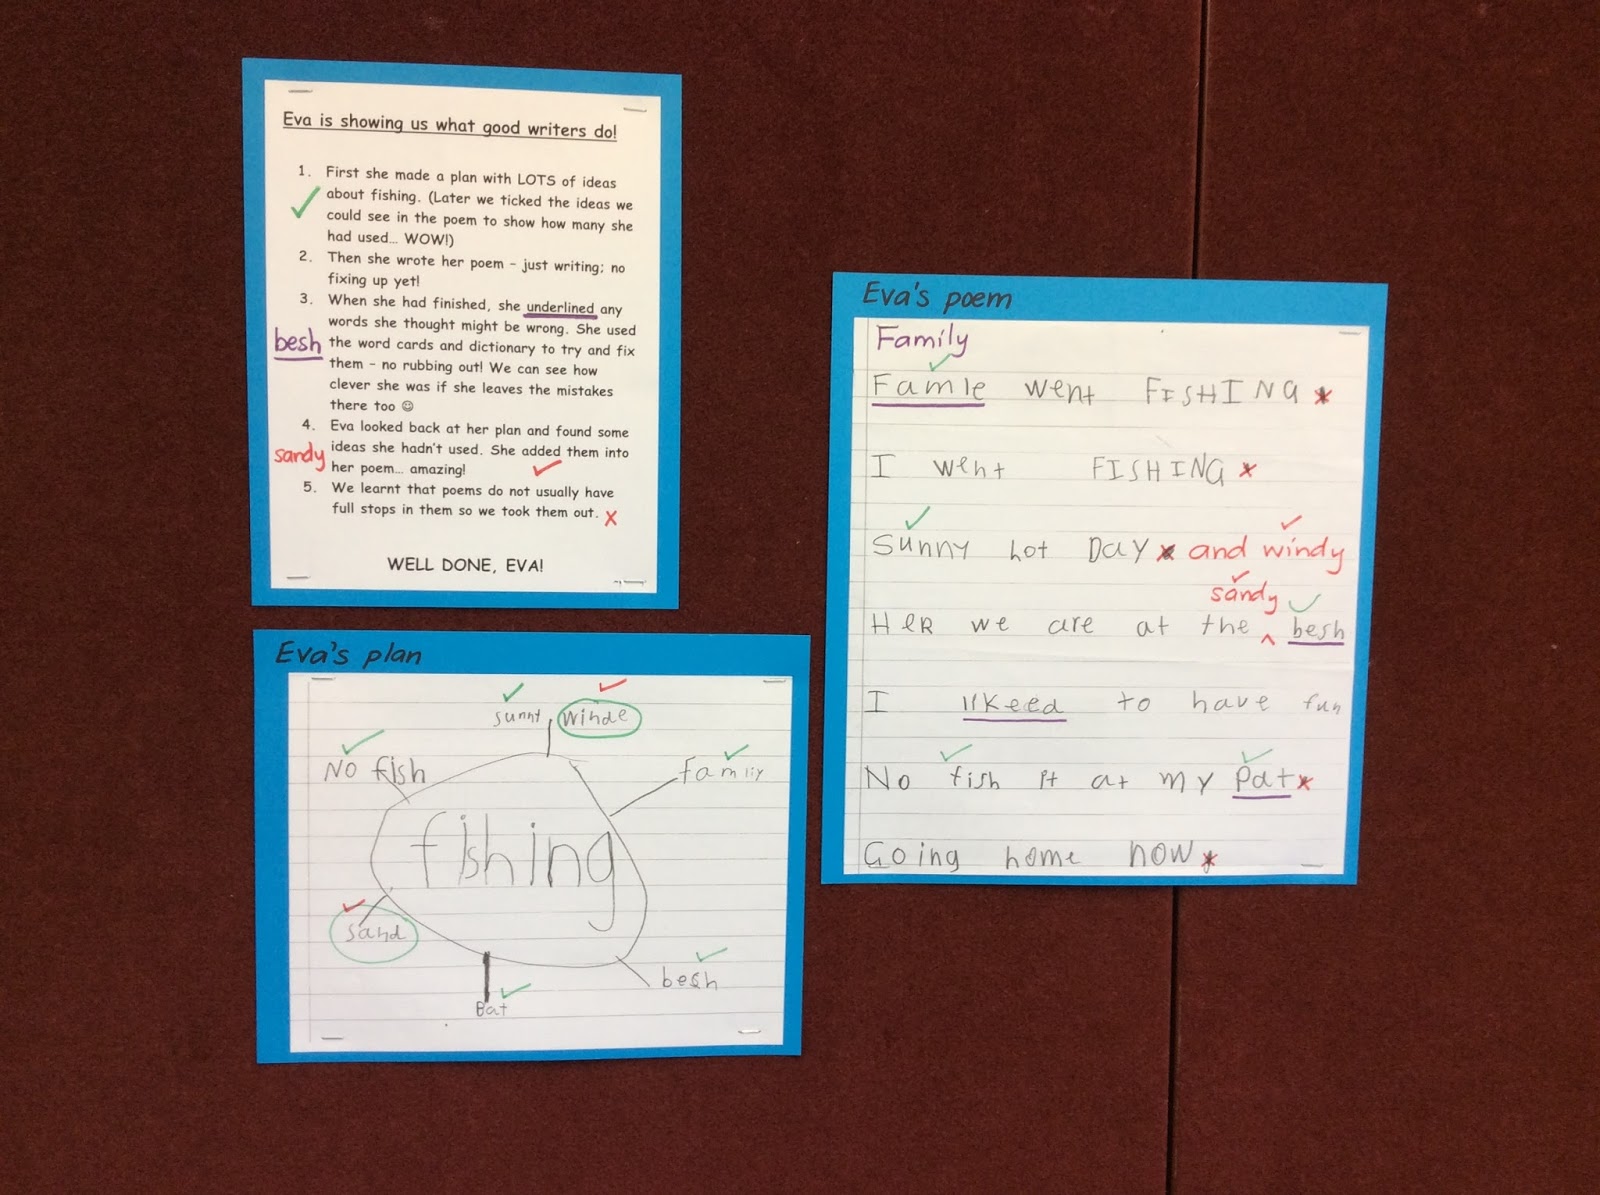 Eva is showing us what good writers do!
1. First she made a plan with LOTS of ideas
about fishing. (Later we ticked the ideas we
could see in the poem to show how many she
had used... WOW!)
2. Then she wrote her poem – just writing; no
fixing up yet!
3. When she had finished, she underlined any
words she thought might be wrong. She used
besh the word cards and dictionary to try and fix
them – no rubbing out! We can see how
clever she was if she leaves the mistakes
there too ☺
4. Eva looked back at her plan and found some
sandy ideas she hadn't used. She added them into
her poem... amazing!
5. We learnt that poems do not usually have
full stops in them so we took them out. x
WELL DONE, EVA!
Eva's plan
sunnt winde
No fish
family
fishing
sand
besh
Bat
Eva's poem
Family
Famle went FISHING
I went FISHING
Sunny hot Day and windy
sandy
Her we are at the ^ besh
I likeed to have fun
No fish it at my pat
Going home now